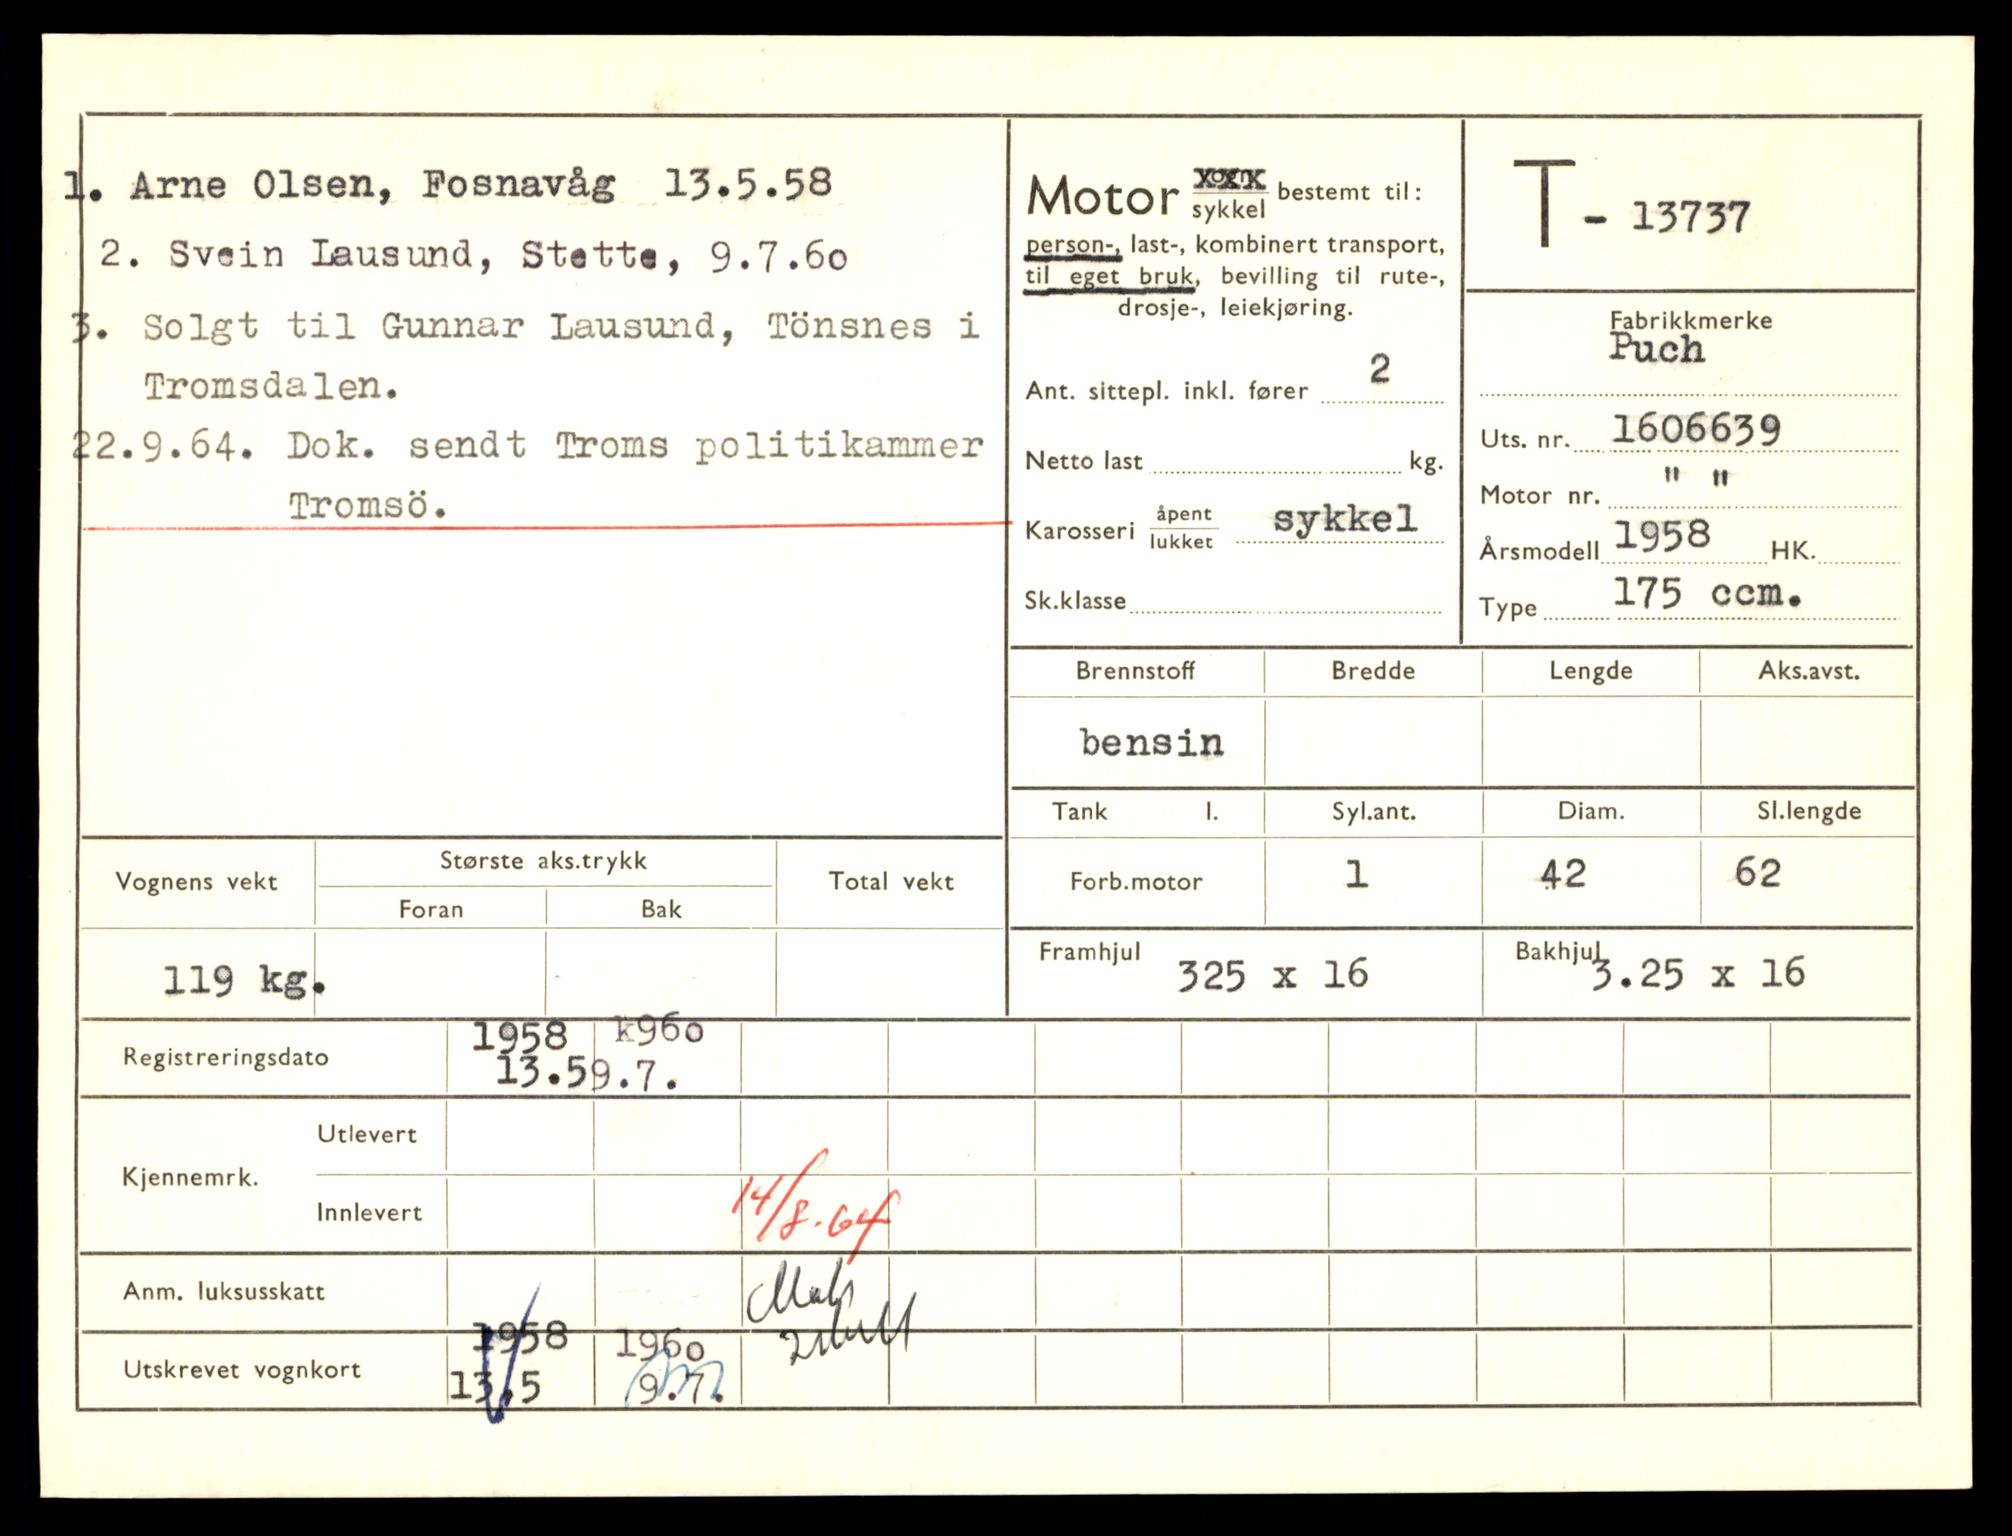 1. Arne Olsen, Fosnavåg 13.5.58
2. Svein Lausund, Stette, 9.7.6o
3. Solgt til Gunnar Lausund, Tönsnes i
Tromsdalen.
22.9.64. Dok. sendt Troms politikammer
Tromsö.
Motor vogn xxx
sykkel bestemt til:
person-, last-, kombinert transport,
til eget bruk, bevilling til rute-,
drosje-, leiekjøring.
Ant. sittepl. inkl. fører 2
Netto last kg.
Karosseri åpent
lukket sykkel
Sk.klasse
T - 13737
Fabrikkmerke
Puch
Uts. nr. 1606639
Motor nr. " "
Årsmodell 1958 HK.
Type 175 ccm.
Brennstoff Bredde Lengde Aks.avst.
bensin
Tank l. Syl.ant. Diam. Sl.lengde
Forb.motor 1 42 62
Framhjul 325 x 16 Bakhjul 3.25 x 16
Vognens vekt Største aks.trykk Total vekt
Foran Bak
119 kg.
1958 k96o
Registreringsdato
13.59.7.
Utlevert
Kjennemrk.
Innlevert 14/8.64
Anm. luksusskatt
1958 196o
Utskrevet vognkort
13.5 9.7.